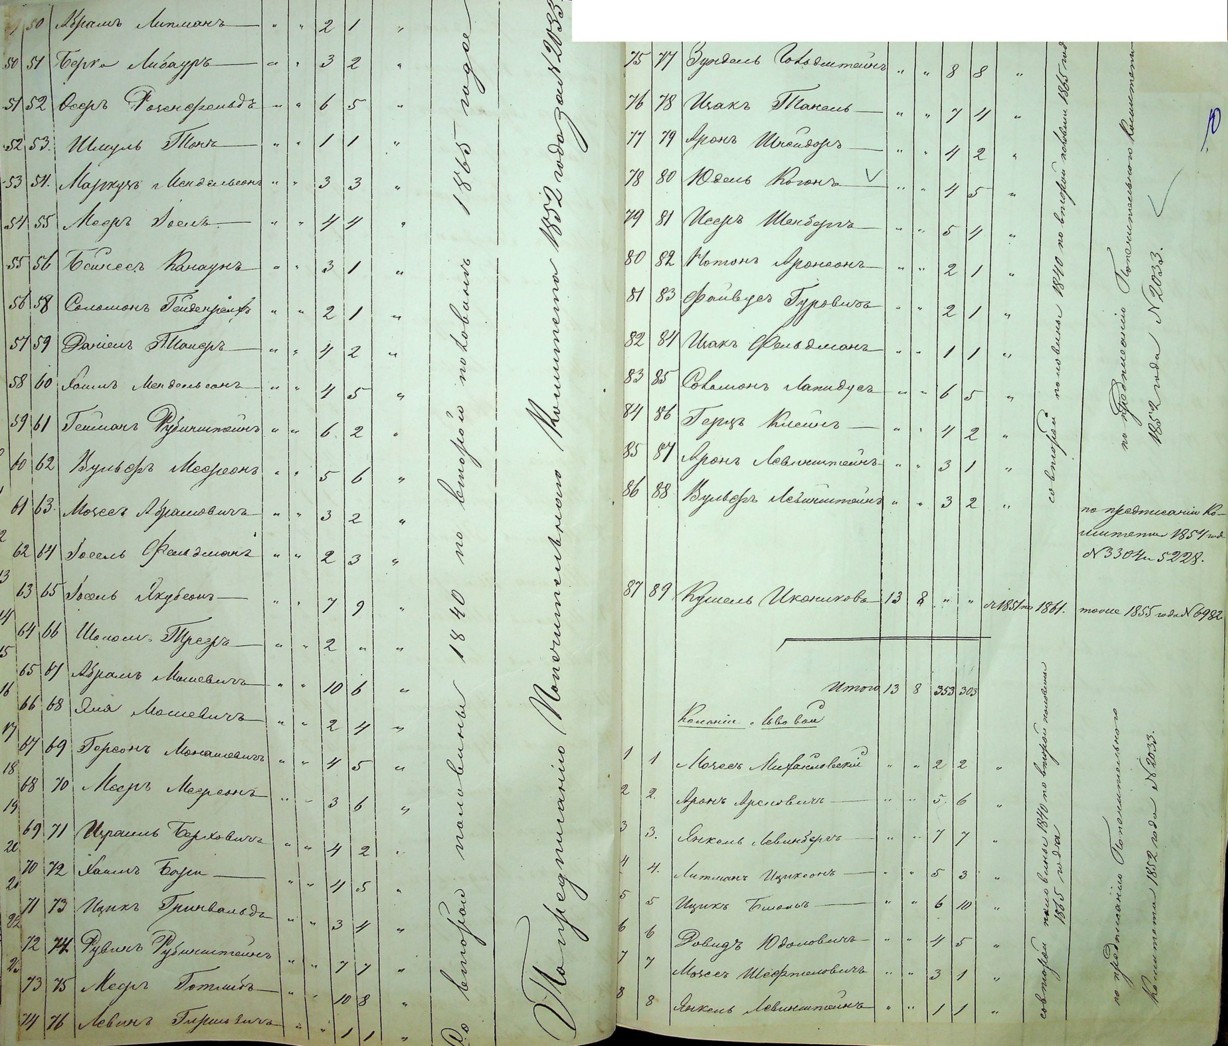 50 Абрамъ Липманъ — " " 2 1 "
50 51 Берка Либауръ — " " 3 2 "
51 52 Осеръ Розенфельдъ " " 6 5 "
52 53. Шмуль Тонъ " " 1 1 "
53 54. Маркусъ Мендельсонъ " " 3 3 "
54 55 Мееръ Іоель — " " 4 4 "
55 56 Бейнесъ Канаунъ " " 3 1 "
56 58 Соломонъ " " 2 1 "
57 59 Даніелъ Танеръ — " " 4 2 "
58 60 Хаимъ Мендельсонъ " " 4 5 "
59 61 Гейманъ Рубинштейнъ " " 6. 2 "
60 62 Вульфъ Мееросонъ " " 5 6 "
61 63. Мозесъ Абрамовичъ " " 3 2 "
62 64 Іосель Фельдманъ " " 2 3 "
63 65 Іосель Якубсонъ " " 7 9 "
64 66 Шолом. — " " 2 " "
65 67 Абрамъ Мошевичъ " " 10 6 "
66 68 Яня Мошевичъ " " 2 4 "
67 69 Герсонъ Монашовичъ " " 4 5 "
68 70 Мееръ Меерсонъ " " 3 6 "
69 71 Израиль Берховичъ " " 4 2 "
70 72 Хаимъ — " " 4 5 "
71 73 Ицикъ Гринвальдъ " " 3 4 "
72 74. Рувинъ Рубинштейнъ " " 7 7 "
73 75 Мееръ Готлибъ " " 10 8 "
74 76 Левинъ Гиршовичъ " " 1 1 "
Со второй половины 1840 по второй половинъ 1865 года
По предписанію Попечительнаго Комитета 1852 года за № 2033
75 77 Зундель Гольдштейнъ " " 8 8 "
76 78 Ицакъ Танель — " " 7 4 "
77 79 Аронъ Шнейдеръ — " " 4 2 "
78 80 Юдель Когонъ — " " 4 5 "
79 81 Исеръ Шенбергъ " " 5 4 "
80 82 Нотонъ Аронсонъ " " 2 1 "
81 83 Файвусъ Гуровичъ " " 2 1 "
82 84 Ицакъ Фельдманъ " " 1 1 "
83 85 Соломонъ Лапидусъ " " 6 5 "
84 86 Герцъ Клейнъ — " " 4 2 "
85 87 Аронъ Левинштейнъ " " 3 1 "
86 88 Вульфъ Левинштейнъ " " 3 2 "
со второй половины 1840 по второй половины 1865 года
по предписанію Попечительнаго Комитета
1852 года № 2033.
по предписанію Ко-
митета 1854 года
№ 3304 и 5228.
87 89 Кушель Икониковъ 13 8 " " съ 1851 по 1861. тоже 1855 года № 6982
Итого 13 8 353 303
Колоніи Львовой
1 1 Мозесъ Михайловскій " " 2 2 "
2 2. Аронъ Ароновичъ — " " 5 6 "
3 3. Янкель Левинбергъ — " " 7 7 "
4 4. Литманъ Ициксонъ — " " 5 3 "
5 5 Ицикъ — " " 6 10 "
6 6 Довидъ Юдоловичъ " " 4 5 "
7 7 Мозесъ Шефтеловичъ " " 3 1 "
8 8 Янкель Левинштейнъ " " 1 1 "
со второй половины 1840 по второй половины
1865 года
по предписанію Попечительнаго
Комитета 1852 года № 2033.